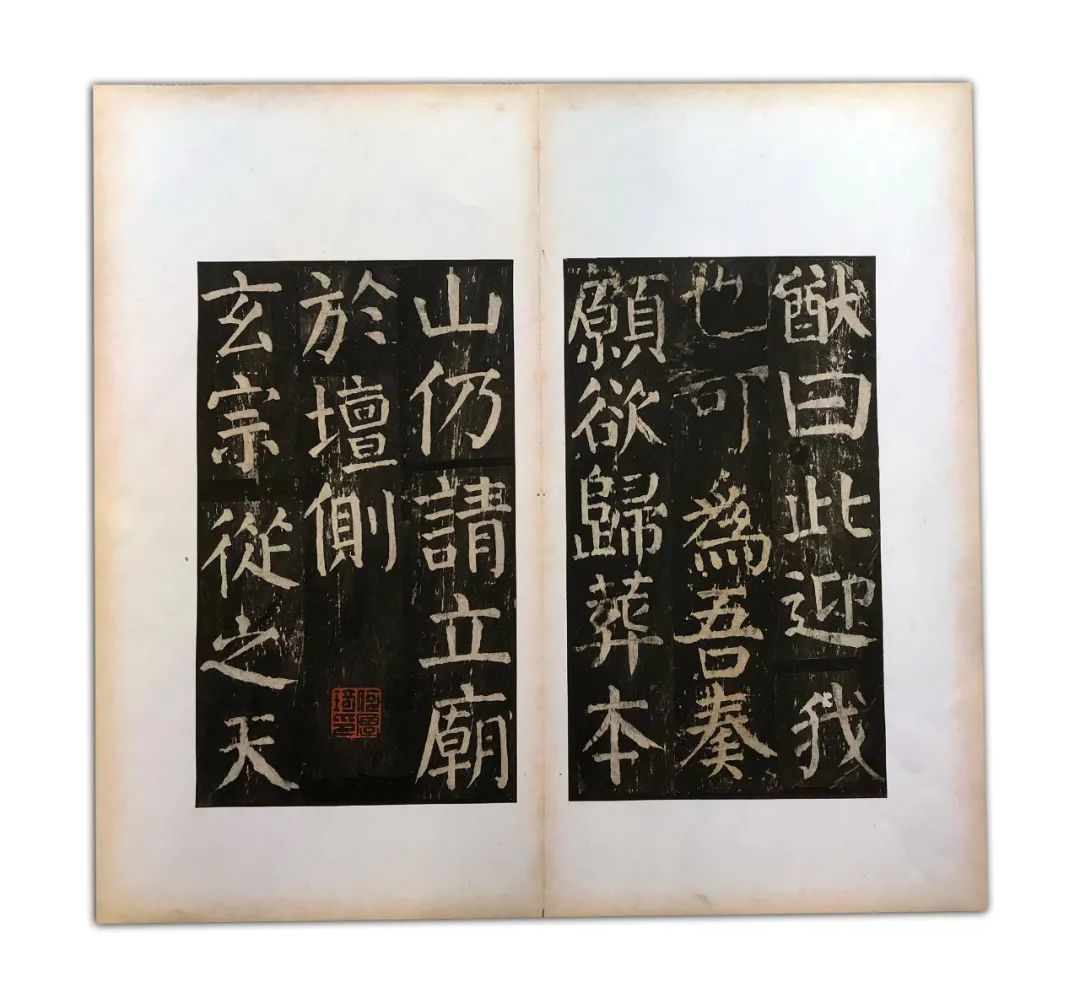 猷曰此迎我
也可為吾奏
願欲歸葬本
山仍請立廟
於壇側
玄宗從之天